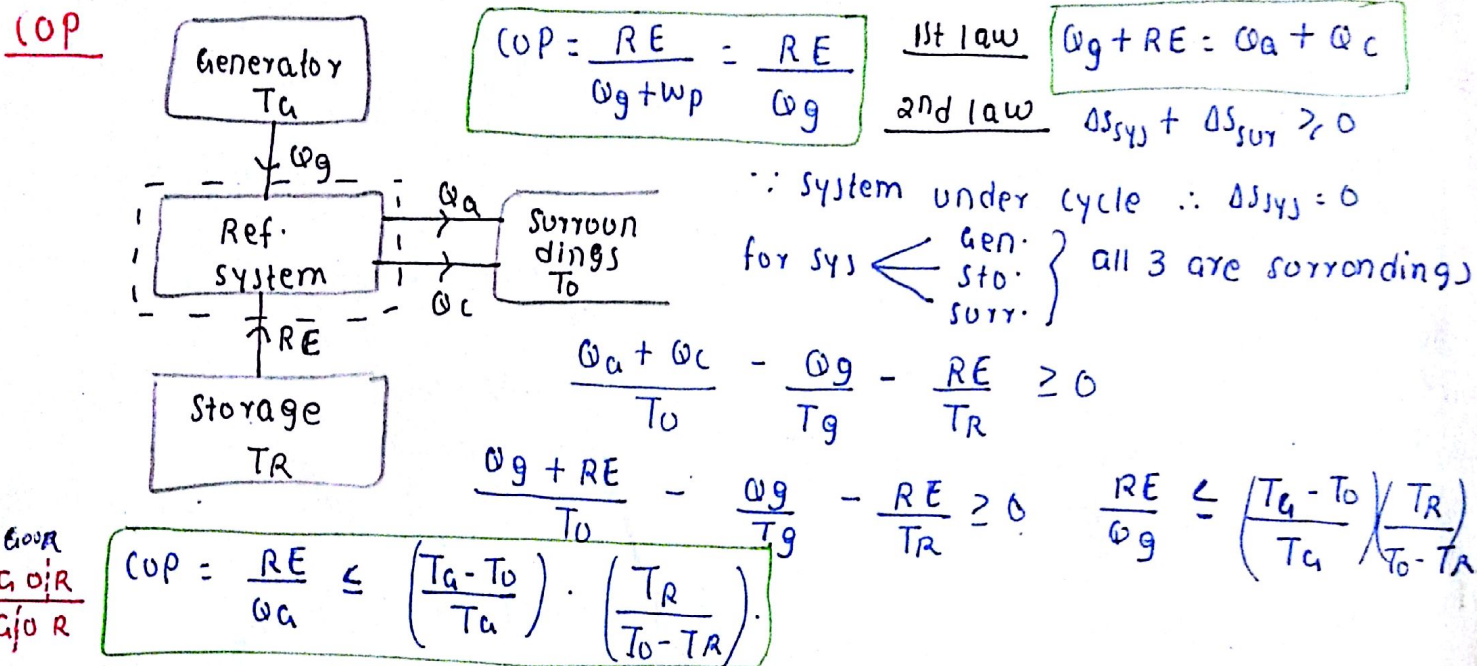 COP
Generator
TG
Qg
Ref.
system
Qa
Qc
Surroun
dings
To
RE
Storage
TR
COP = RE / (Qg + Wp) = RE / Qg
1st law Qg + RE = Qa + Qc
2nd law ΔSsys + ΔSsur ≥ 0
∵ system under cycle ∴ ΔSsys = 0
for sys Gen. Sto. Surr. } all 3 are sorrondings
(Qa + Qc) / To - Qg / Tg - RE / TR ≥ 0
(Qg + RE) / To - Qg / Tg - RE / TR ≥ 0
RE / Qg ≤ ((TG - To) / TG) (TR / (To - TR))
GOOR
G O|R
G|O R
COP = RE / QG ≤ ((TG - To) / TG) . (TR / (To - TR)).